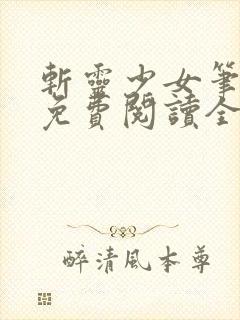 斬靈少女筆
免費閱讀全
醉清風本尊